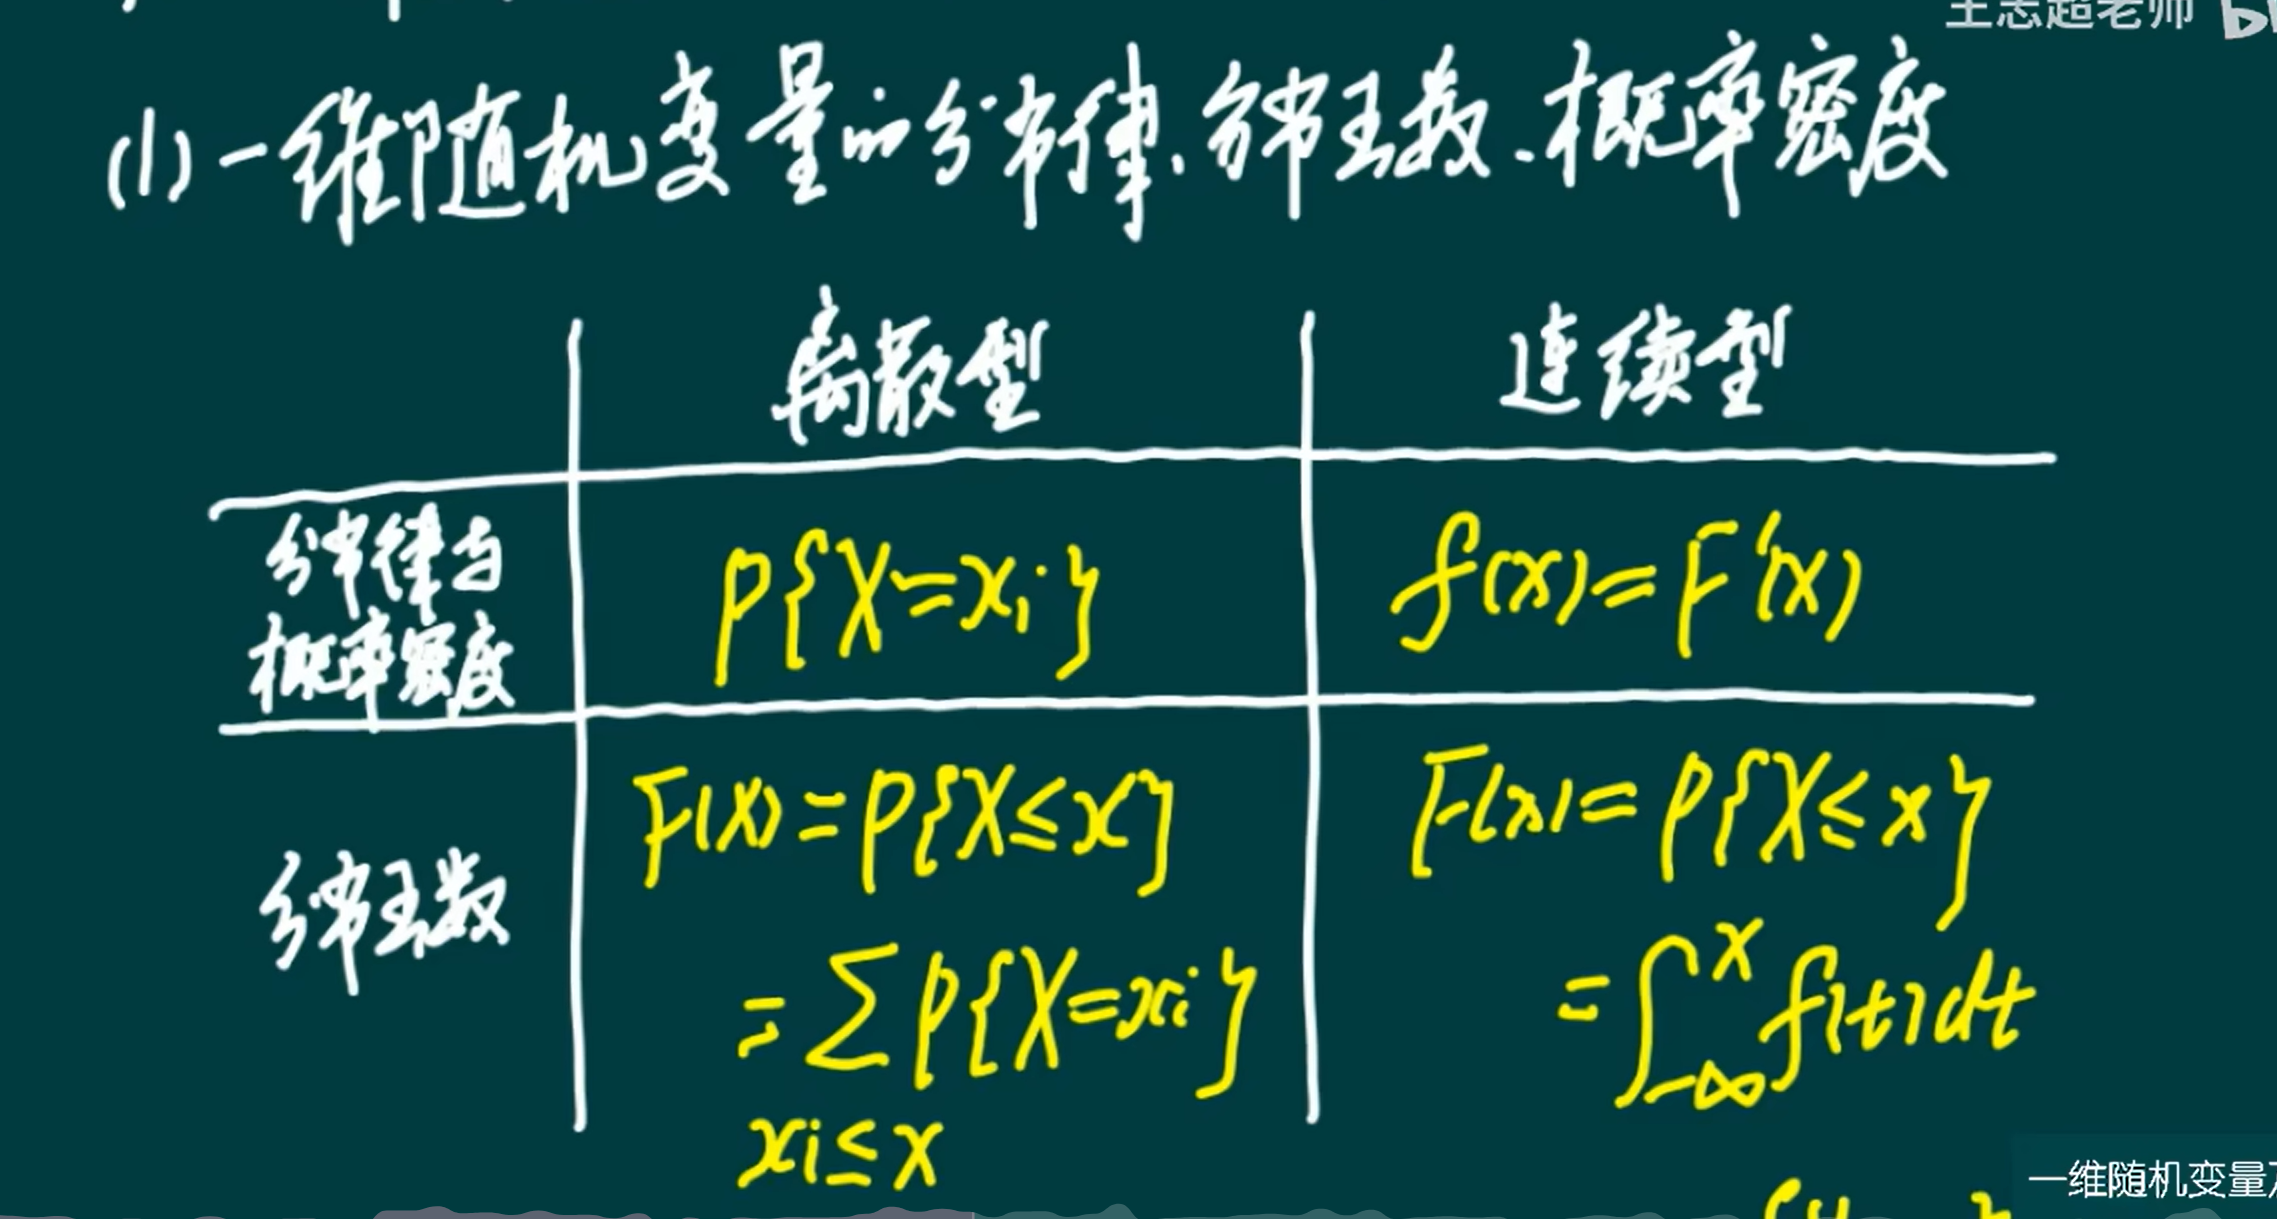 王志超老师
(1)一维随机变量的分布律、分布函数、概率密度
离散型 连续型
分布律与
概率密度
P{X=xi} f(x)=F'(x)
分布函数
F(x)=P{X≤x} F(x)=P{X≤x}
=∑P{X=xi} =∫_{-∞}^{x} f(t)dt
xi≤x
一维随机变量